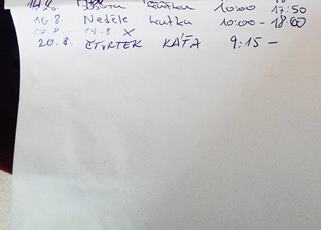 10:00 17:50
16.8. Neděle 10:00 - 18:00
17.8. - 19.8. X
20.8. ČTVRTEK KÁŤA 9:15 -